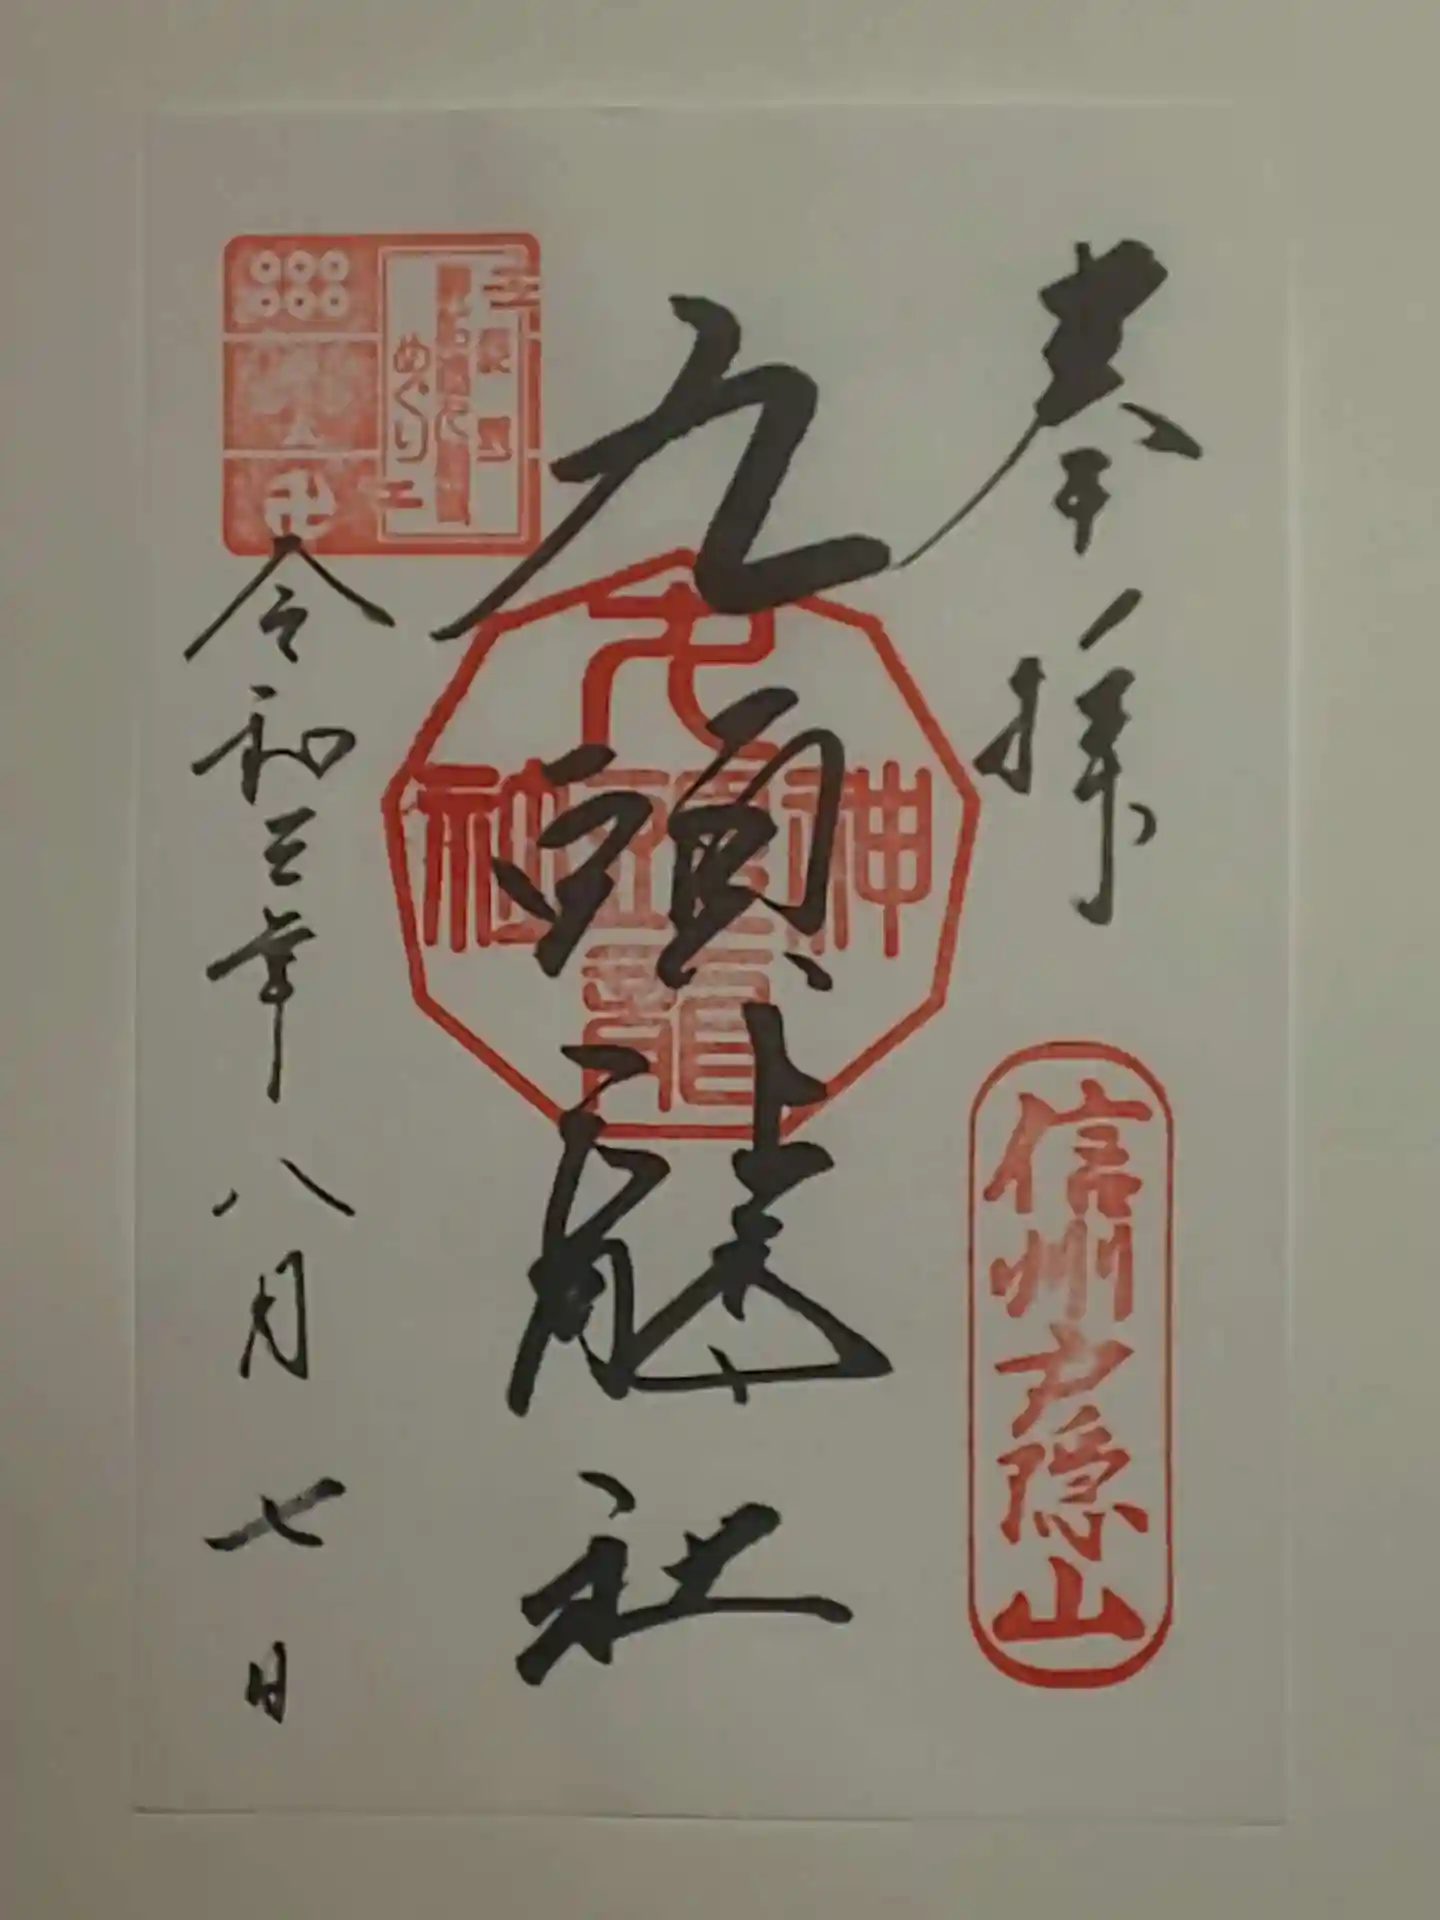 奉拝
信州戸隠山
九頭龍社
九頭龍神社
めぐり
令和三年八月七日